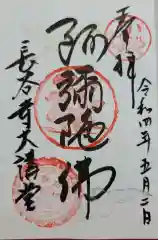 奉拝
令和四年五月二日
弥彌陀佛
長谷寺大講堂